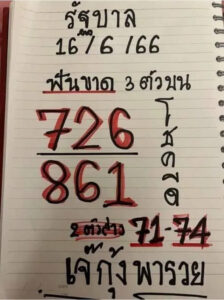 รัฐบาล
16/6/66
ฟันขาด 3 ตัวบน
726
861
โชคดี
2 ตัวล่าง 71-74
เจ๊กุ้ง พารวย